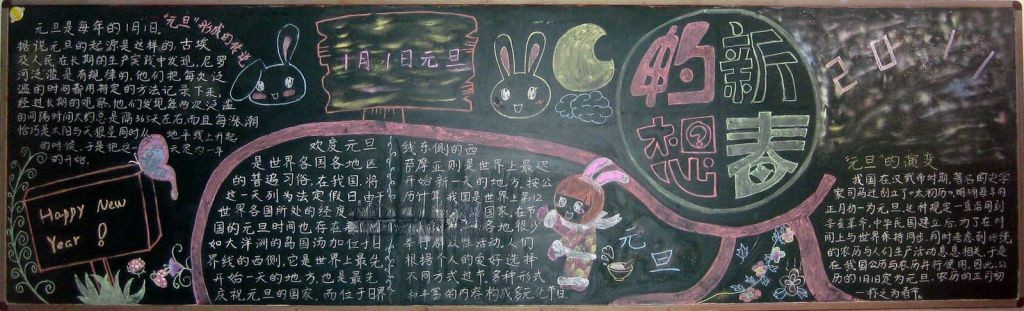 "元旦"形成的传说
元旦是每年的1月1日。
据说元旦的起源是这样的,古埃
及人民在长期的生产实践中发现,尼罗
河泛滥是有规律的,他们把每次泛
滥的时间都用特定的方法记录下来,
经过长期的观察,他们发现每两次泛滥
的间隔时间大约总是隔365天左右,而且每涨潮
恰巧是太阳与天狼星同时从 地平线上升起
的时候,于是把这一 天定为一年
的开始。
Happy New
Year!
1月1日元旦
欢度元旦
是世界各国各地区
的普遍习俗,在我国,将
这一天列为法定假日,由于
世界各国所处的经度
国的元旦时间也存在
如大洋洲的岛国汤加位于日
界线的西侧,它是世界上最先
开始一天的地方,也是最先
庆祝元旦的国家,而位于日界
线东侧的西
萨摩亚则是世界上最迟
开始新一天的地方,按公
历计算,我国是世界上第12
国家,在节
各地很少
举行群众性活动,人们
根据个人的爱好选择
不同方式过节,多种形式
和丰富的内容构成多元化节日
元旦
新春
的想
201
元旦的演变
我国在汉武帝时期,著名的史学
家司马迁创立了"太初历",明确每年阴
正月初一为元旦,这种规定一直沿用到
辛亥革命,中华民国建立后,为了在时
间上与世界保持同步,同时考虑到传统
的农历与人们生产活动息息相关,于是
在我国公历与农历并行使用,因此,公
历的1月1日定为元旦,农历的正月初
一称之为春节。